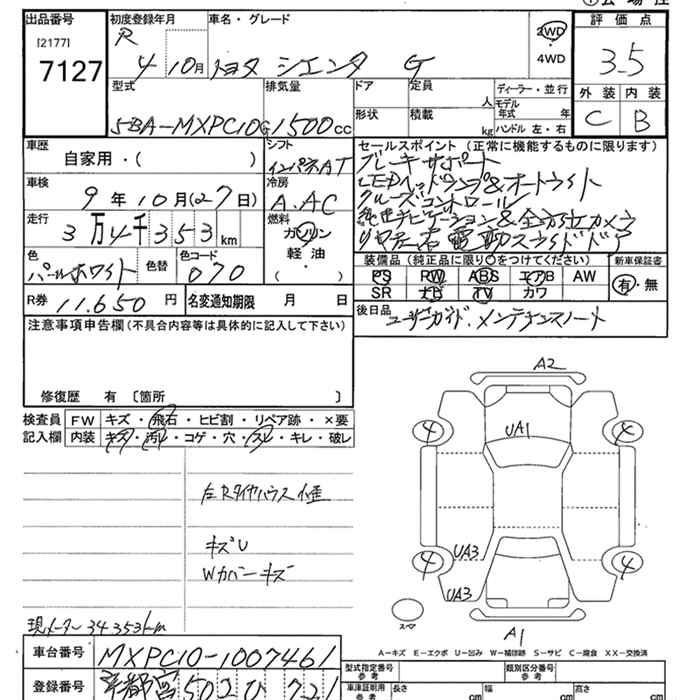 出品番号 初度登録年月 車名・グレード 2WD 評価点
[2177] R 4WD
7127 4 10月 トヨタ シエンタ G 3.5
型式 排気量 ドア 定員 人 ディーラー・並行 外装 内装
5BA-MXPC10G 1500cc 形状 積載 kg モデル年式 年 ハンドル 左・右 C B
車歴 自家用・( ) シフト インパネAT セールスポイント (正常に機能するものに限ります)
ブレーキサポート
車検 9年10月(27日) 冷房 A.AC LEDヘッドランプ&オートライト
クルーズコントロール
走行 3万4千353km 燃料 ガソリン 純正ナビゲーション&全方位カメラ
軽油 リヤ左右電動スライドドア
色 パールホワイト 色替 色コード 070 ・( )
装備品(純正品に限り○をつけてください) 新車保証書
PS RW ABS エアB AW 有・無
SR ナビ TV カワ
R券 11.650円 名変通知期限 月 日
後日品 ユーザーガイド.メンテナンスノート
注意事項申告欄(不具合内容等は具体的に記入して下さい)
修復歴 有 〔箇所 〕
検査員 記入欄
FW キズ・飛石・ヒビ割・リペア跡・×要
内装 キズ・汚レ・コゲ・穴・スレ・キレ・破レ
A2
4 4
UA1
左Rタイヤハウス
キズU
Wカバーキズ
UA3
4 4
UA3
スペア
A1
現メーター 34353km
A-キズ E-エクボ U-凹み W-補修跡 S-サビ C-腐食 XX-交換済
車台番号 MXPC10-1007461
型式指定番号 参考 類別区分番号 参考
登録番号
車庫証明用 参考 長さ cm 幅 cm 高さ cm